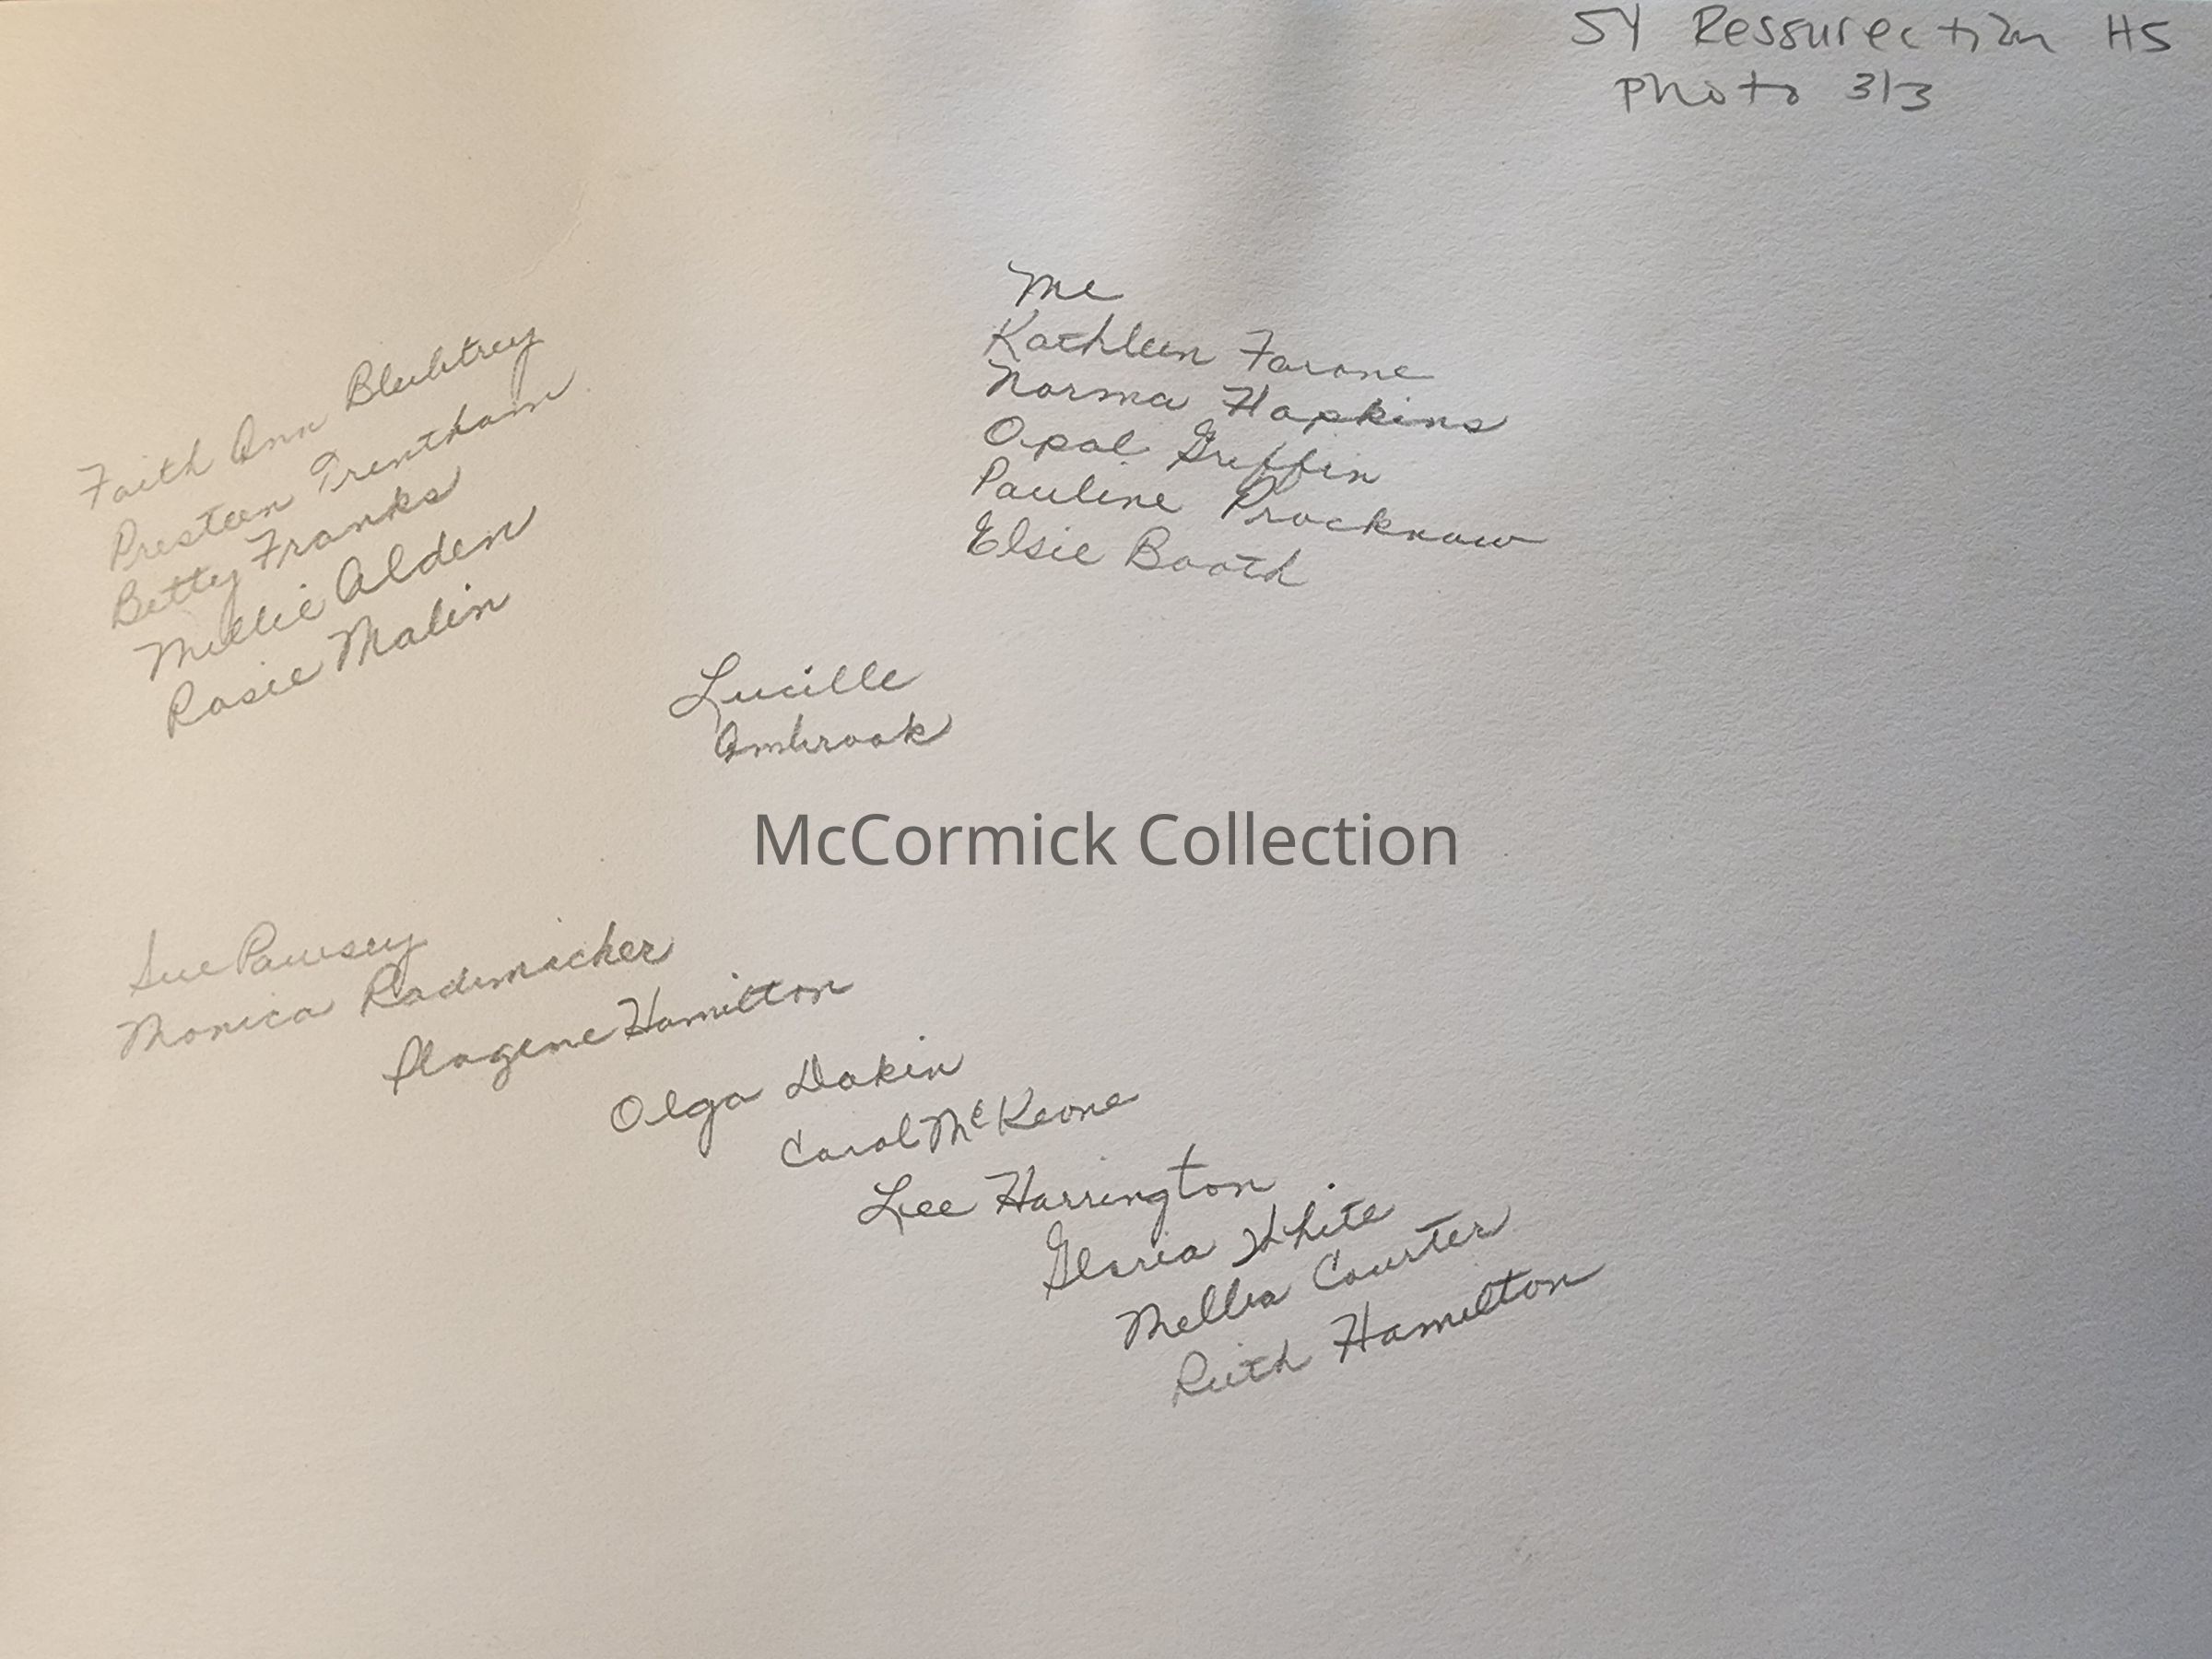 54 Ressurection HS
photo 3/3
Me
Kathleen Farone
Norma Hopkins
Opal Griffin
Pauline Procknow
Elsie Booth
Faith Ann
Presteen Trentham
Betty Franks
Millie Alden
Rosie Malin
Lucille
Ambrook
McCormick Collection
Sue Pawsey
Monica Rademacher
Plagene Hamilton
Olga Dakin
Carol McKeone
Lee Harrington
Gloria White
Mellia Courter
Ruth Hamilton